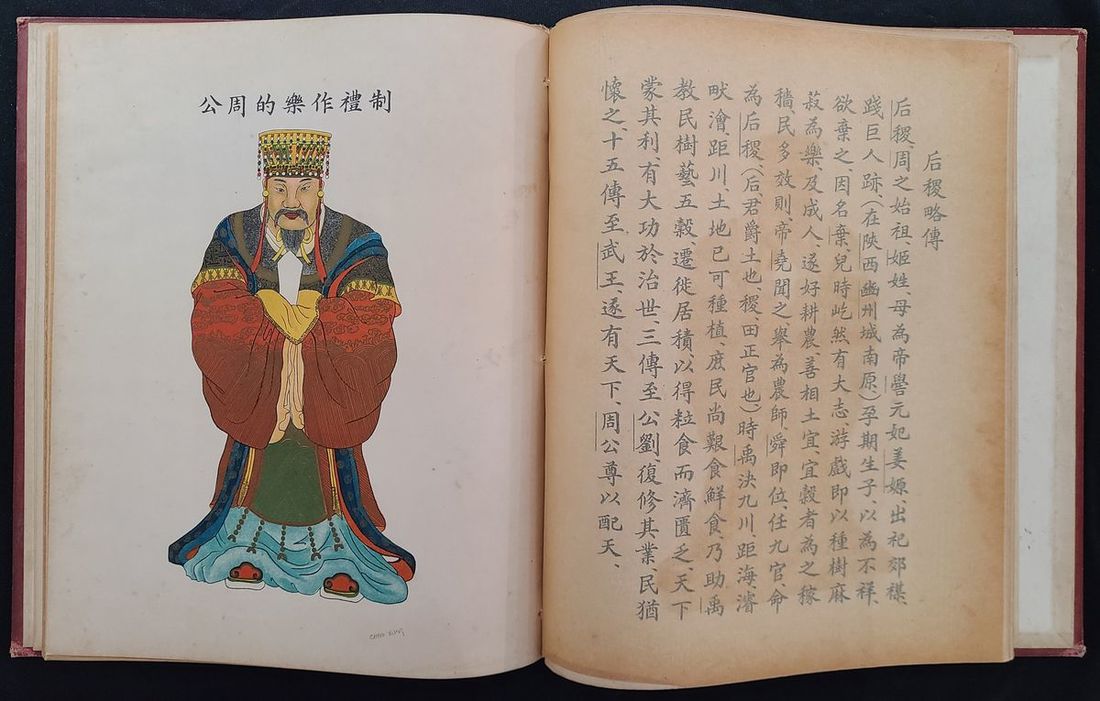 后稷略傳
后稷周之始祖、姬姓母為帝嚳元妃姜嫄、出祀郊禖、
踐巨人跡(在陝西豳州城南原)孕期生子、以為不祥、
欲棄之、因名棄、兒時屹然有大志、游戲即以種樹麻
菽為樂及成人、遂好耕農、善相土宜、宜穀者為之稼
穡民多效則、帝堯聞之、舉為農師、舜即位、任九官、命
為后稷(后、君爵土也、稷、田正官也)時禹決九川、距海濬
畎澮距川、土地已可種植、庶民尚艱食鮮食、乃助禹
教民樹藝五穀、遷徙居積、以得粒食而濟匱乏、天下
蒙其利、有大功於治世、三傳至公劉、復修其業、民猶
懷之、十五傳至武王、遂有天下、周公尊以配天、
制禮作樂的周公